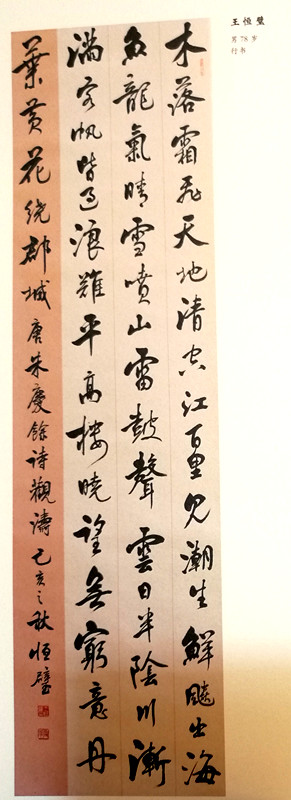 王恒璧
男 78 岁
行书
木落霜飛天地清空江百里見潮生鮮飈出海
魚龍氣晴雪噴山雷鼓聲雲日半陰川漸
滿客帆皆過浪難平高樓曉望無窮意丹
葉黄花繞郡城唐朱慶餘詩觀濤己亥之秋恒璧